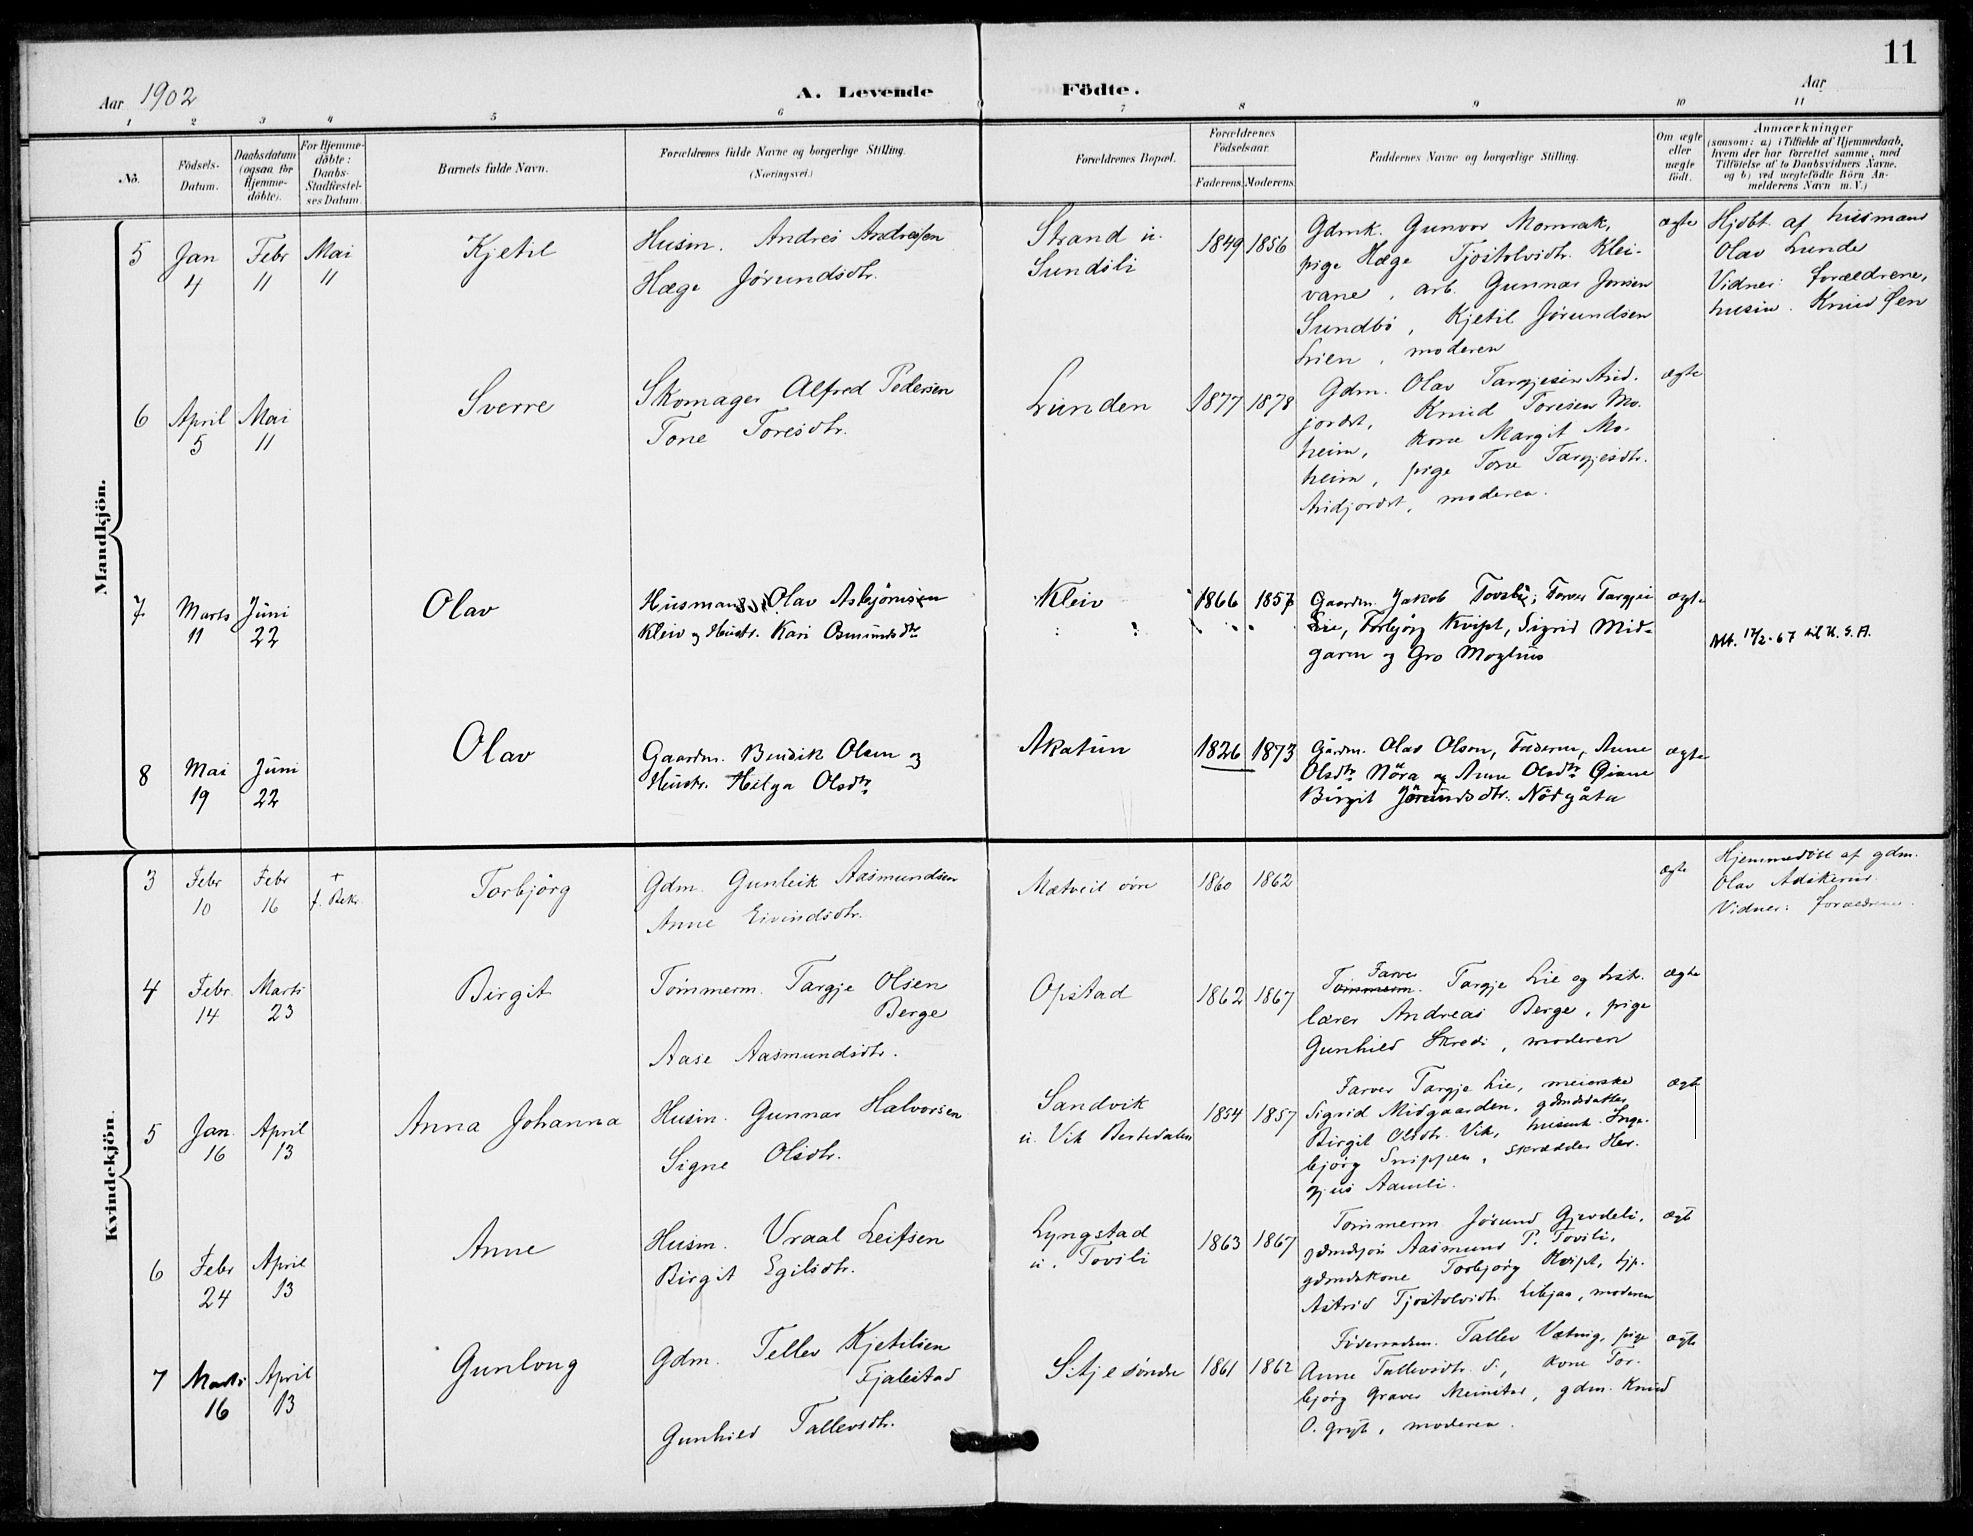 11
Aar 1902
A. Levende
Födte.
Aar
1 2 3 4 5 6 7 8 9 10 11
No.
Födsels-Datum.
Daabsdatum (ogsaa for Hjemme-döbte).
For Hjemme-döbte: Daabs-Stadfæstel-ses Datum.
Barnets fulde Navn.
Forældrenes fulde Navne og borgerlige Stilling.
(Næringsvei.)
Forældrenes Bopæl.
Forældrenes Födselsaar.
Faderens. Moderens.
Faddernes Navne og borgerlige Stilling.
Om ægte eller uægte födt.
Anmærkninger
(saasom: a) i Tilfælde af Hjemmedaab, hvem der har forrettet samme, med Tilföielse af to Daabsvidners Navne, og b) ved uægtefödte Börn An-melderens Navn m.V.)
Mandkjön.
5 Jan 4 Febr 11 Mai 11 Kjetil
Husm. Andres Andresen
Hæge Jørundsdtr.
Strand u.
Sundsli
1849 1856
Gdmk. Gunvor Momrak,
pige Hæge Tjostolvsdtr. Klei-
vane, arb. Gunnar Jonsen
Sundbö, Kjetil Jørundsen
Lien, moderen
ægte
Hjdbt. af husmand
Olav Lunde
Vidner: forældrene,
husm. Knud Øen
6 April 5 Mai 11 Sverre
Skomager Alfred Pedersen
Tone Toresdtr.
Lunden
1877 1878
Gdm. Olav Targjesen Arid.
jordet, Knud Toresen Mo.
heim, kone Margit Mo.
heim, pige Tone Targjesdtr.
Aridjordet, moderen.
ægte
7 Marts 11 Juni 22 Olav
Husmand Olav Asbjørnsen
Kleiv og Hustr. Kari Osmundsdtr
Kleiv
1866 1857
Gaardm. Jakob Tovsli, Farver Targjei
Lie, Torbjörg Kvipt, Sigrid Mid-
garen og Gro Moghus
ægte
Att. 17/2-67 til U.S.A.
8 Mai 19 Juni 22 Olav
Gaardm. Bendik Olsen og
Hustr. Helga Olsdtr
Akatun
1826 1873
Gårdm. Olav Olson, Faderen, Anne
Olsdtr Nöra og Anne Olsdtr
Birgit Jörundsdtr. Nödgåta
ægte
Kvindekjön.
3 Febr 10 Febr 16 + f. Bekr. Torbjörg
Gdm. Gunleik Aasmundsen
Anne Eivindsdtr.
Mætveit övre
1860 1862
ægte
Hjemmedöbt af gdm.
Olav
Vidner: forældrene.
4 Febr. 14 Marts 23 Birgit
Tömmerm. Targje Olsen
Berge
Aase Aasmundsdtr.
Opstad
1862 1867
Farver
Tömmerm. Targje Lie og
lærer Andreas Berge, pige
Gunhild Skredi, moderen
ægte
5 Jan. 16 April 13 Anna Johanna
Husm. Gunnar Halvorsen
Signe Olsdtr.
Sandvik
u. Vik Bertedalen
1854 1857
Farver Targje Lie, meierske
Sigrid Midgaarden, gdmdsdatter
Birgit Olsdtr. Vik, husmk. Inge.
björg Snippen, skrædder Her.
gjus Aamli.
ægt
6 Febr 24 April 13 Anne
Husm. Vraal Leifsen
Birgit Egilsdtr.
Lyngstad
u. Tovsli
1863 1867
Tömmerm. Jørund Gjevdeli,
gdmdsjön Aasmund P. Tovsli,
gdmdskone Torbjörg Kvipt, tjp.
Astrid Tjostolvsdtr. Libjaa, moderen
ægt
7 Marts 16 April 13 Gunlong
Gdm. Tellev Kjetilsen
Fjalestad
Gunhild Tallevsdtr.
Sitje söndre
1861 1862
Tallev Vætnig, pige
Anne Tallevsdtr. S., kone Tor.
björg Graver Meinstad, gdm. Knud
O. Grybt, moderen.
ægte